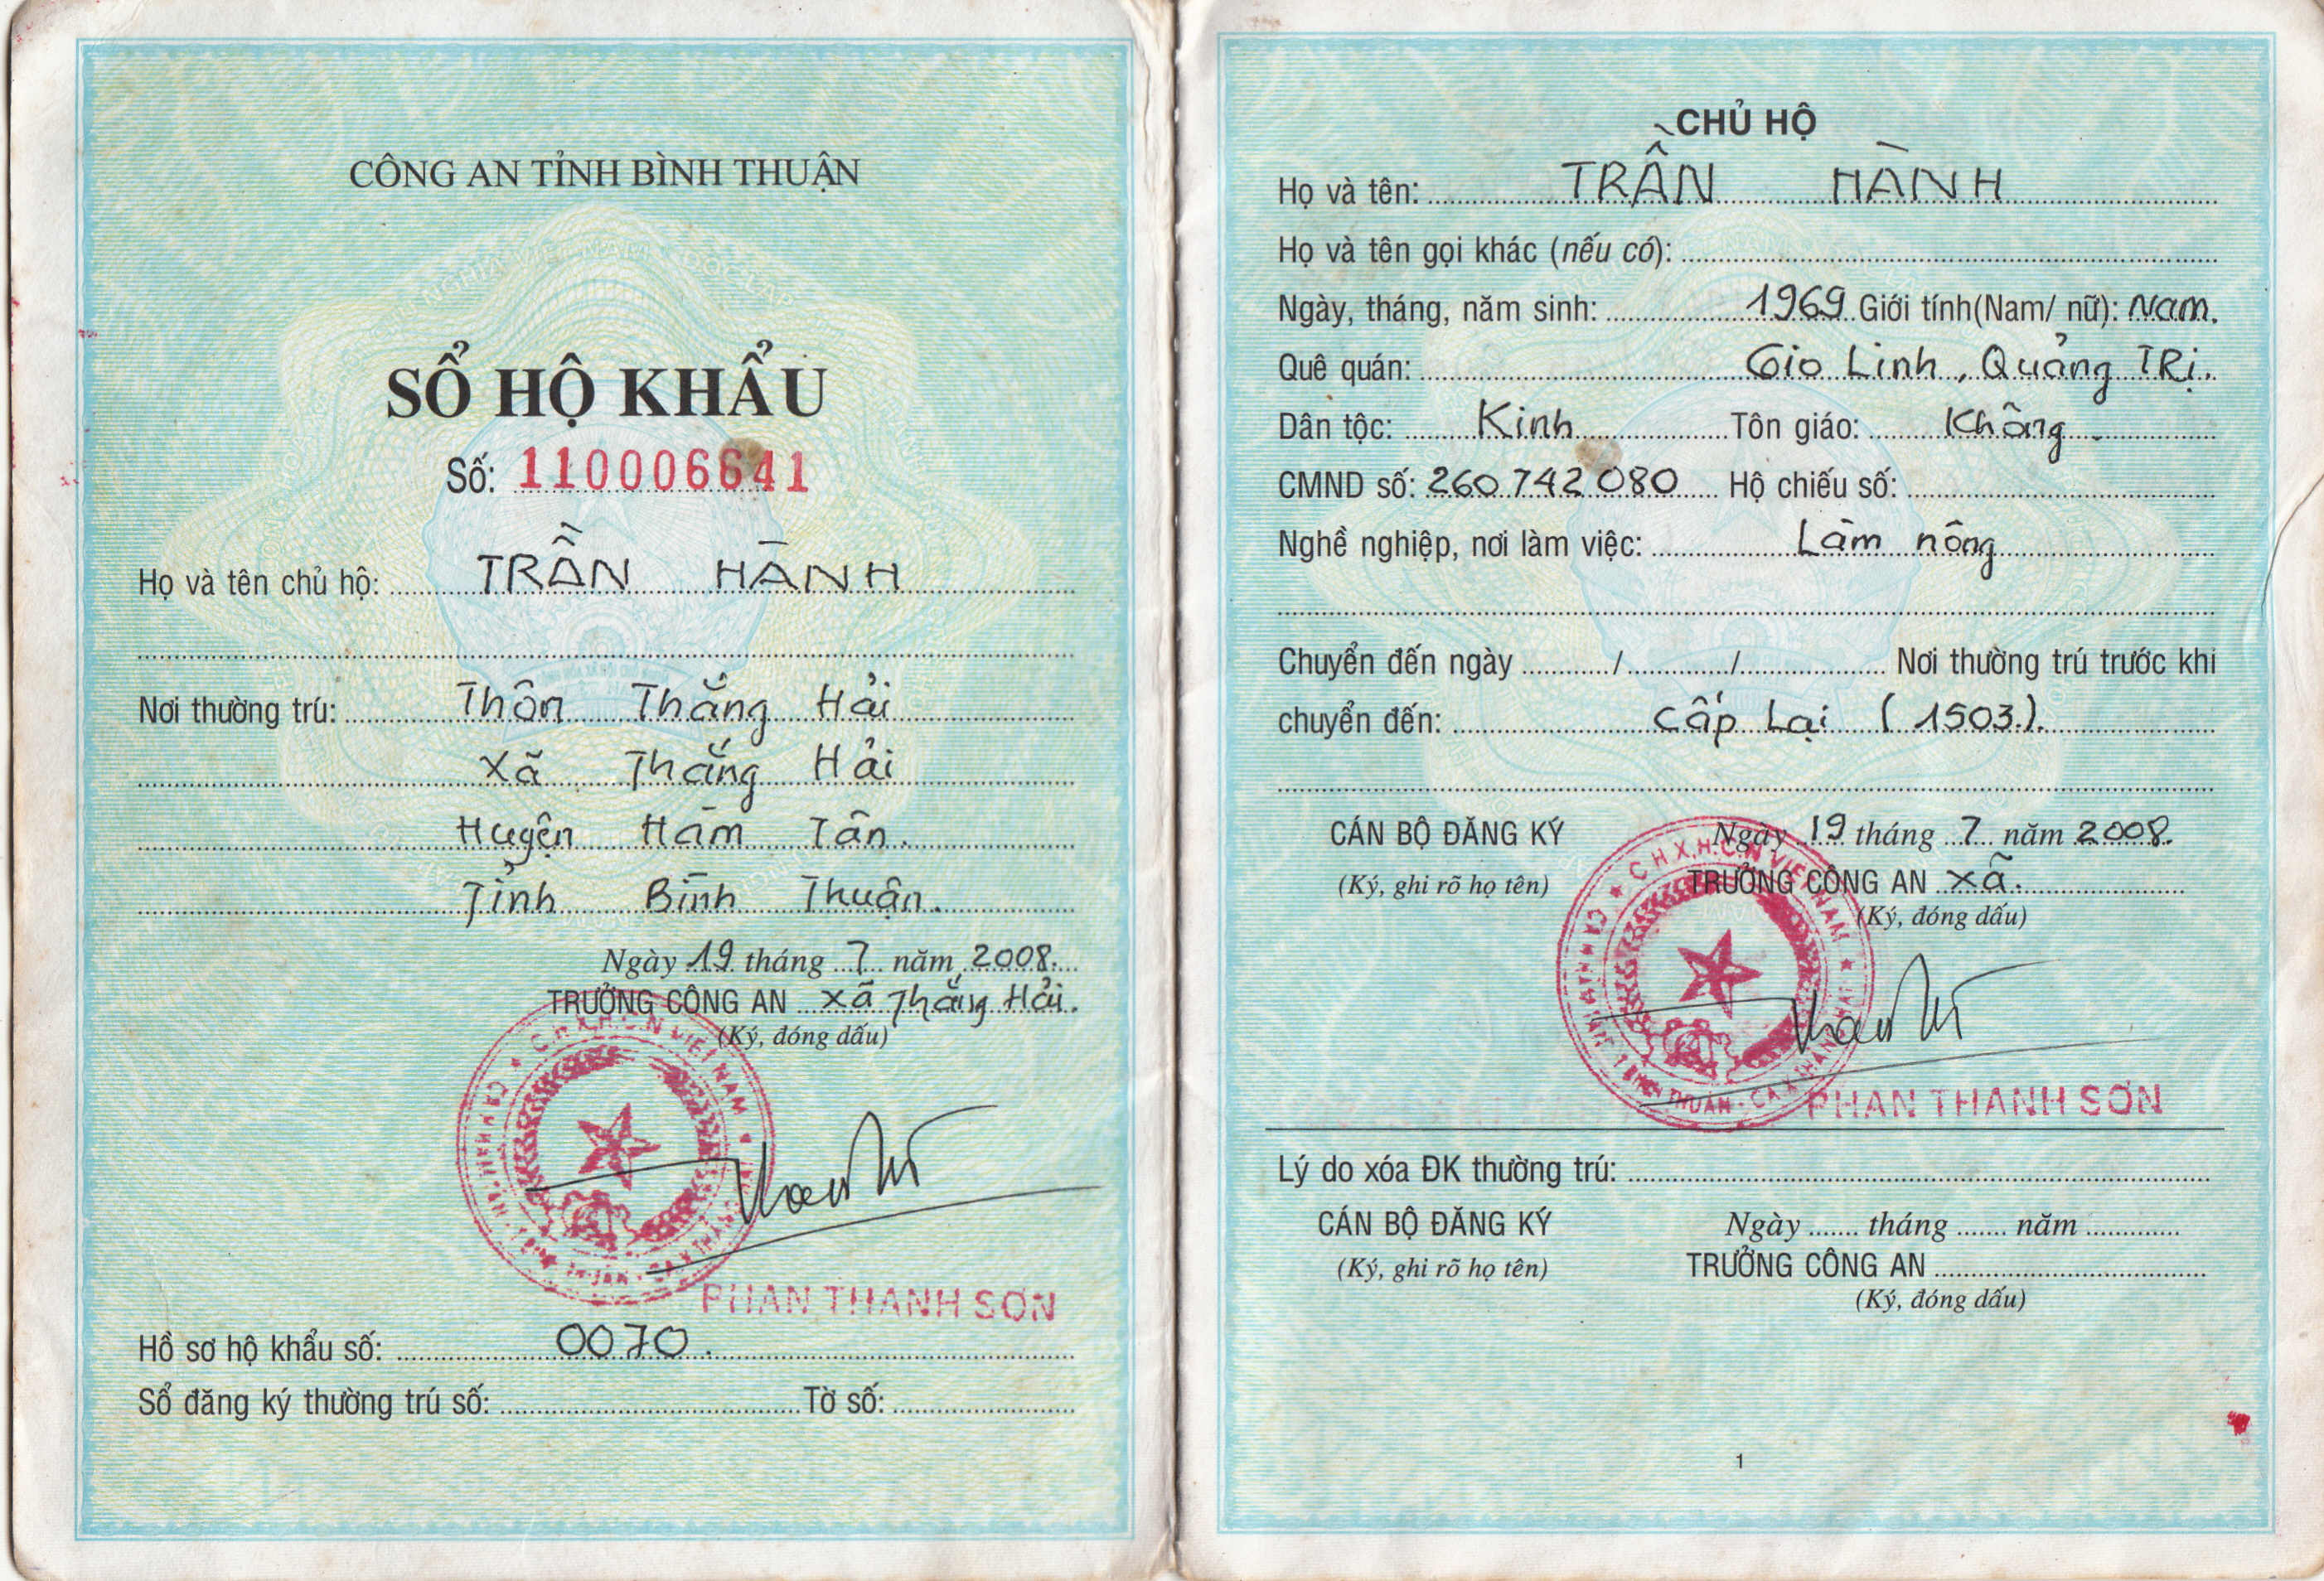 CÔNG AN TỈNH BÌNH THUẬN
SỔ HỘ KHẨU
Số: 110006641
Họ và tên chủ hộ: TRẦN HÀNH
Nơi thường trú: Thôn Thắng Hải
Xã Thắng Hải
Huyện Hàm Tân.
Tỉnh Bình Thuận.
Ngày 19 tháng 7 năm 2008.
TRƯỞNG CÔNG AN xã Thắng Hải.
(Ký, đóng dấu)
C.H.X.H.C.N VIỆT NAM
PHAN THANH SƠN
Hồ sơ hộ khẩu số: 0070.
Sổ đăng ký thường trú số: Tờ số:
CHỦ HỘ
Họ và tên: TRẦN HÀNH
Họ và tên gọi khác (nếu có):
Ngày, tháng, năm sinh: 1969 Giới tính(Nam/ nữ): Nam.
Quê quán: Gio Linh, Quảng TRị.
Dân tộc: Kinh Tôn giáo: Không.
CMND số: 260742080 Hộ chiếu số:
Nghề nghiệp, nơi làm việc: Làm nông
Chuyển đến ngày / / Nơi thường trú trước khi
chuyển đến: Cấp Lại (1503).
CÁN BỘ ĐĂNG KÝ Ngày 19 tháng 7 năm 2008.
(Ký, ghi rõ họ tên) TRƯỞNG CÔNG AN xã.
(Ký, đóng dấu)
C.H.X.H.C.N VIỆT NAM
PHAN THANH SƠN
Lý do xóa ĐK thường trú:
CÁN BỘ ĐĂNG KÝ Ngày tháng năm
(Ký, ghi rõ họ tên) TRƯỞNG CÔNG AN
(Ký, đóng dấu)
1